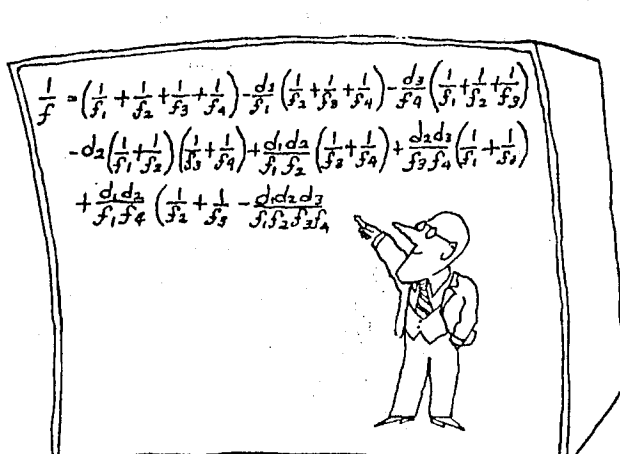 1/f = (1/f₁ + 1/f₂ + 1/f₃ + 1/f₄) - d₁/f₁ (1/f₂ + 1/f₃ + 1/f₄) - d₃/f₄ (1/f₁ + 1/f₂ + 1/f₃)
- d₂(1/f₁ + 1/f₂)(1/f₃ + 1/f₄) + d₁d₂/f₁f₂ (1/f₃ + 1/f₄) + d₂d₃/f₃f₄ (1/f₁ + 1/f₂)
+ d₁d₂/f₁f₄ (1/f₂ + 1/f₃ - d₁d₂d₃/f₁f₂f₃f₄